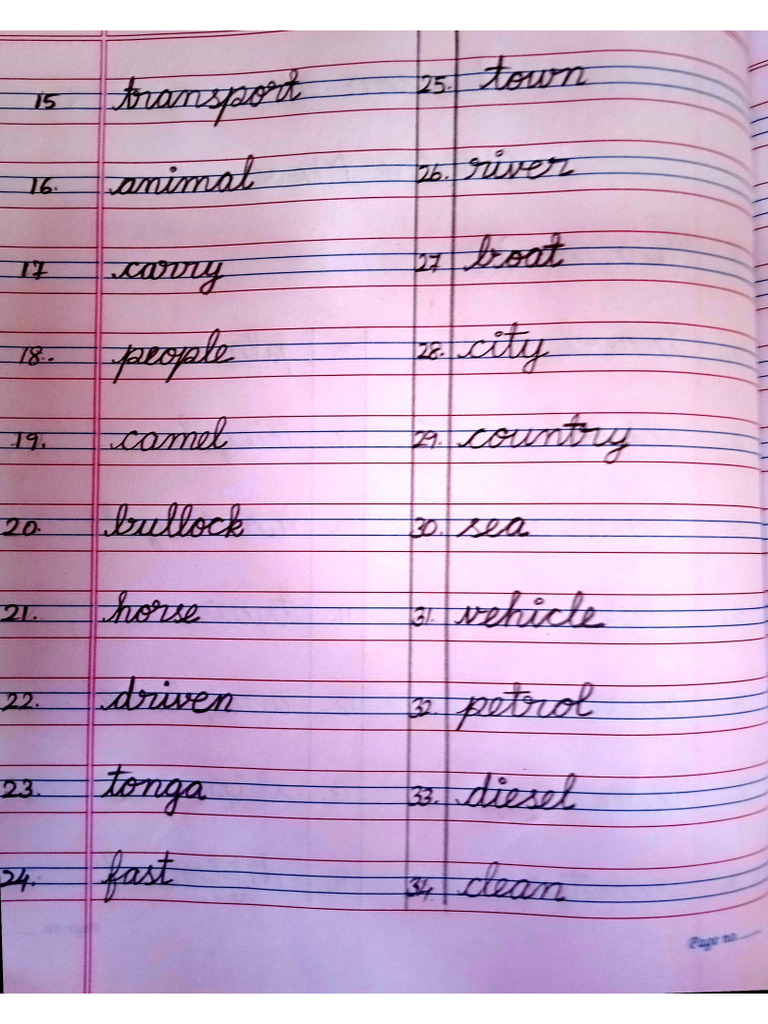 15 transport
16. animal
17 carry
18. people
19. camel
20. bullock
21. horse
22. driven
23. tonga
24. fast
25. town
26. river
27 boat
28. city
29. country
30. sea
31. vehicle
32. petrol
33. diesel
34. clean
Page no.......